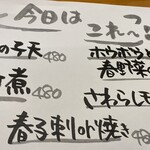 今日は
これ〜!!
の子天 480
煮 480
春子刺or焼き
ホウボウと
春野菜の
さわらしモ